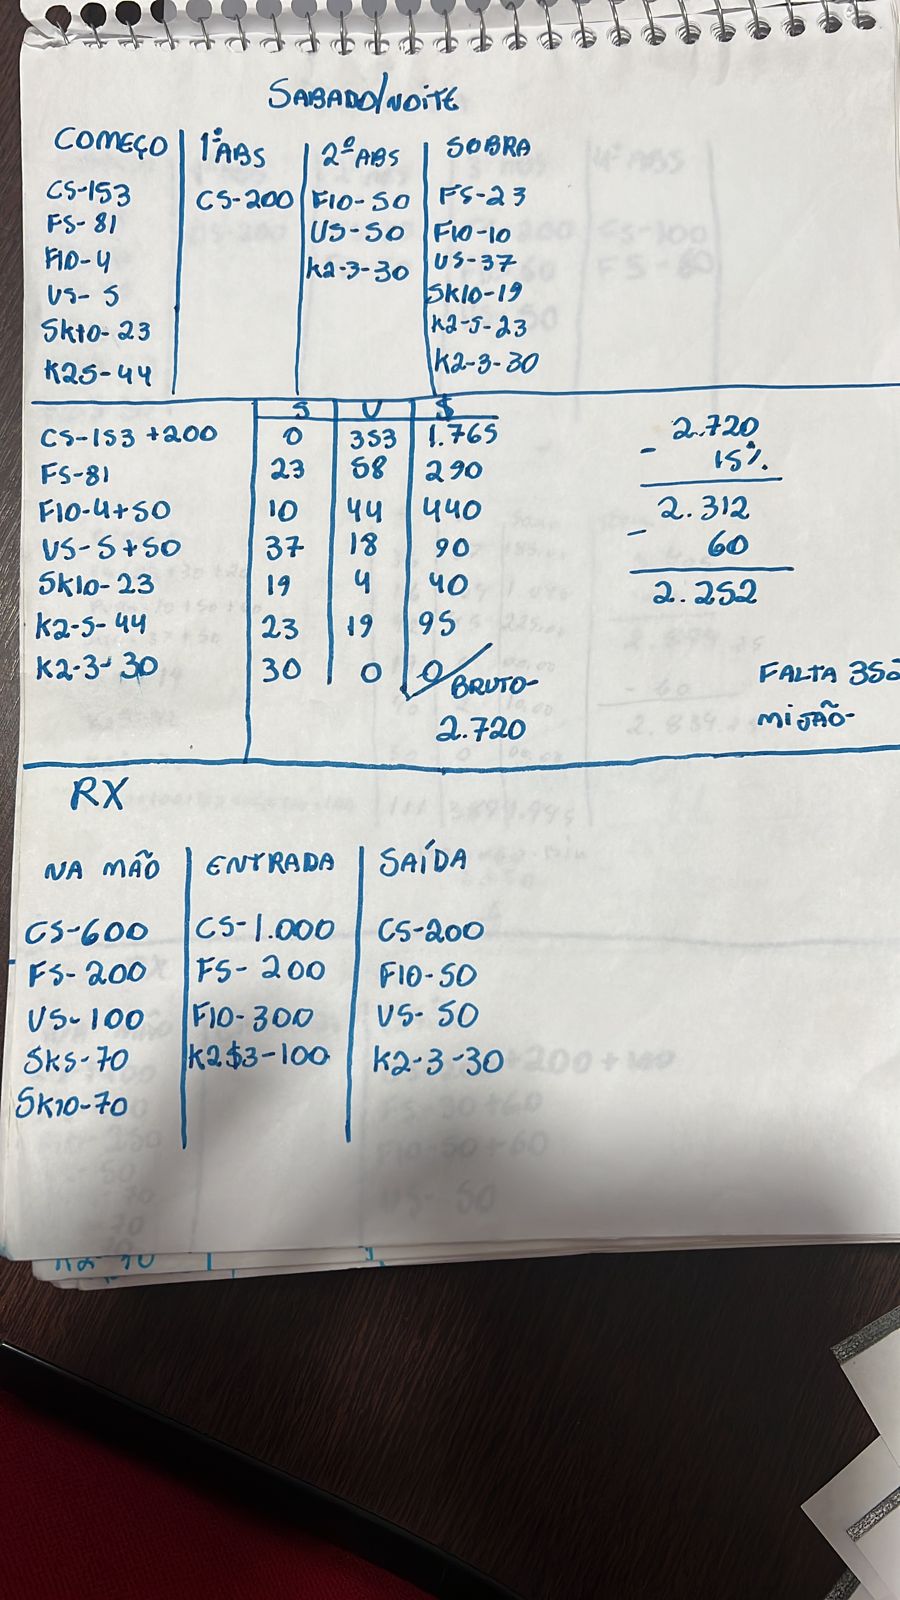 SABADO/NOITE
COMEÇO 1º ABS 2º ABS SOBRA
C5-153 C5-200 F10-50 F5-23
F5-81 U5-50 F10-10
F10-4 K2-3-30 U5-37
U5-5 SK10-19
SK10-23 K2-5-23
K25-44 K2-3-30
S U $
C5-153+200 0 353 1.765
F5-81 23 58 290
F10-4+50 10 44 440
U5-5+50 37 18 90
SK10-23 19 4 40
K2-5-44 23 19 95
K2-3-30 30 0 0
BRUTO-
2.720
2.720
- 15%
2.312
- 60
2.252
FALTA
MIJÃO-
RX
NA MÃO ENTRADA SAÍDA
C5-600 C5-1.000 C5-200
F5-200 F5-200 F10-50
U5-100 F10-300 U5-50
SK5-70 K2$3-100 K2-3-30
SK10-70